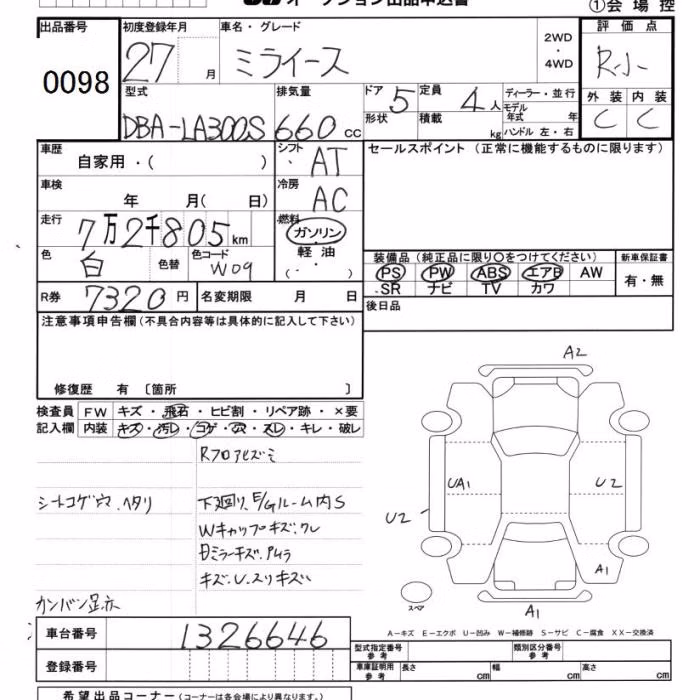 オークション出品申込書
①会場控
出品番号 初度登録年月 車名・グレード 2WD・4WD 評価点
0098 27 月 ミライース R小
型式 排気量 ドア 5 定員 4人 ディーラー・並行 外装 内装
DBA-LA300S 660 cc 形状 積載 kg モデル年式 年 C C
ハンドル 左・右
車歴 自家用・( ) シフト AT セールスポイント (正常に機能するものに限ります)
車検 年 月( 日) 冷房 AC
走行 7万2千805km 燃料 ガソリン
色 白 色替 色コード W09 軽油 ( ・ )
装備品 (純正品に限り○をつけてください) 新車保証書
PS PW ABS エアB AW 有・無
SR ナビ TV カワ
R券 7320円 名変期限 月 日 後日品
注意事項申告欄 (不具合内容等は具体的に記入して下さい)
修復歴 有 〔箇所 〕
検査員 FW キズ・飛石・ヒビ割・リペア跡・×要
記入欄 内装 キズ・汚レ・コゲ・穴・スレ・キレ・破レ
シートコゲ穴.ヘタリ
カンバン足亦
下廻り、E/Gルーム内S
Wキャップキズ.クレ
キズ.U.スリキズ
A2
UA1
U2
U2
A1
スペア
A1
A-キズ E-エクボ U-凹み W-補修跡 S-サビ C-腐食 XX-交換済
車台番号 1326646
型式指定番号 参考 類別区分番号 参考
登録番号
車庫証明用 参考 長さ cm 幅 cm 高さ cm
希望出品コーナー (コーナーは各会場により異なります。)